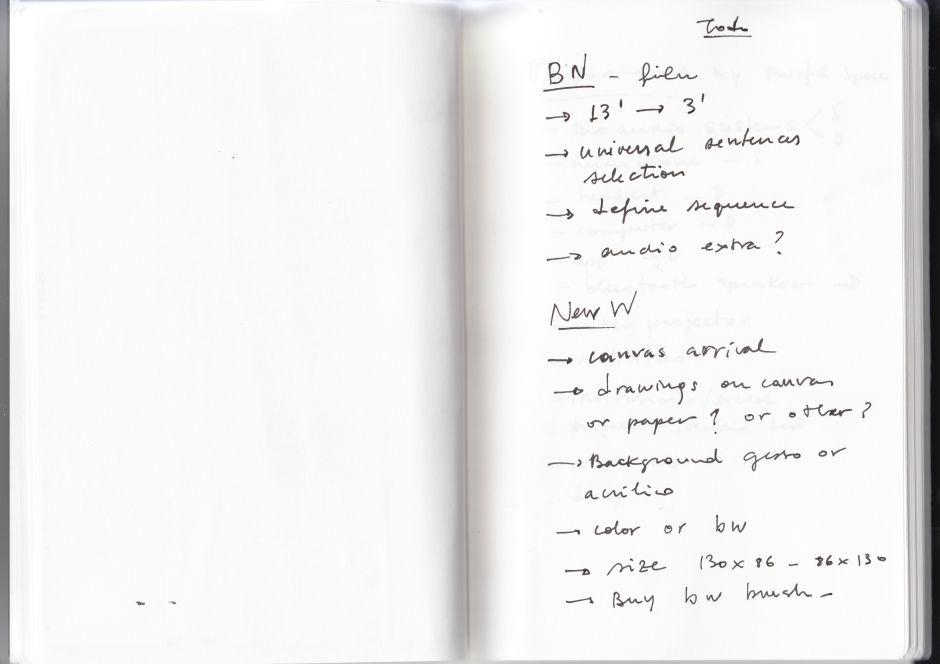 Todo
BN - film
→ 13' → 3'
→ universal sentences
selection
→ define sequence
→ audio extra?
New W
→ canvas arrival
→ drawings on canvas
or paper? or other?
→ Background gesso or
acrilico
→ color or bw
→ size 130x86 - 86x130
→ Buy bw brush -